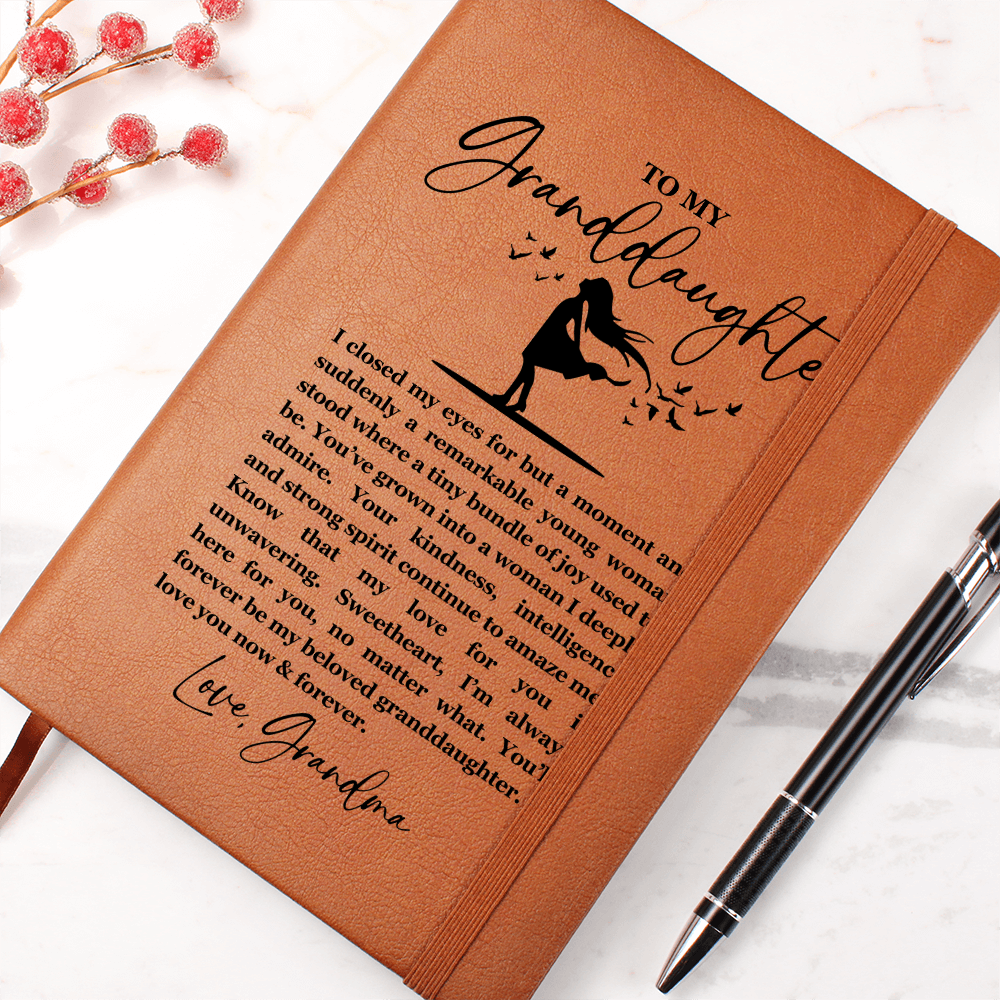 TO MY
Granddaughte
I closed my eyes for but a moment an
suddenly a remarkable young woma
stood where a tiny bundle of joy used t
be. You've grown into a woman I deepl
admire. Your kindness, intelligenc
and strong spirit continue to amaze me
Know that my love for you i
unwavering. Sweetheart, I'm alway
here for you, no matter what. You'l
forever be my beloved granddaughter.
love you now & forever.
Love, Grandma